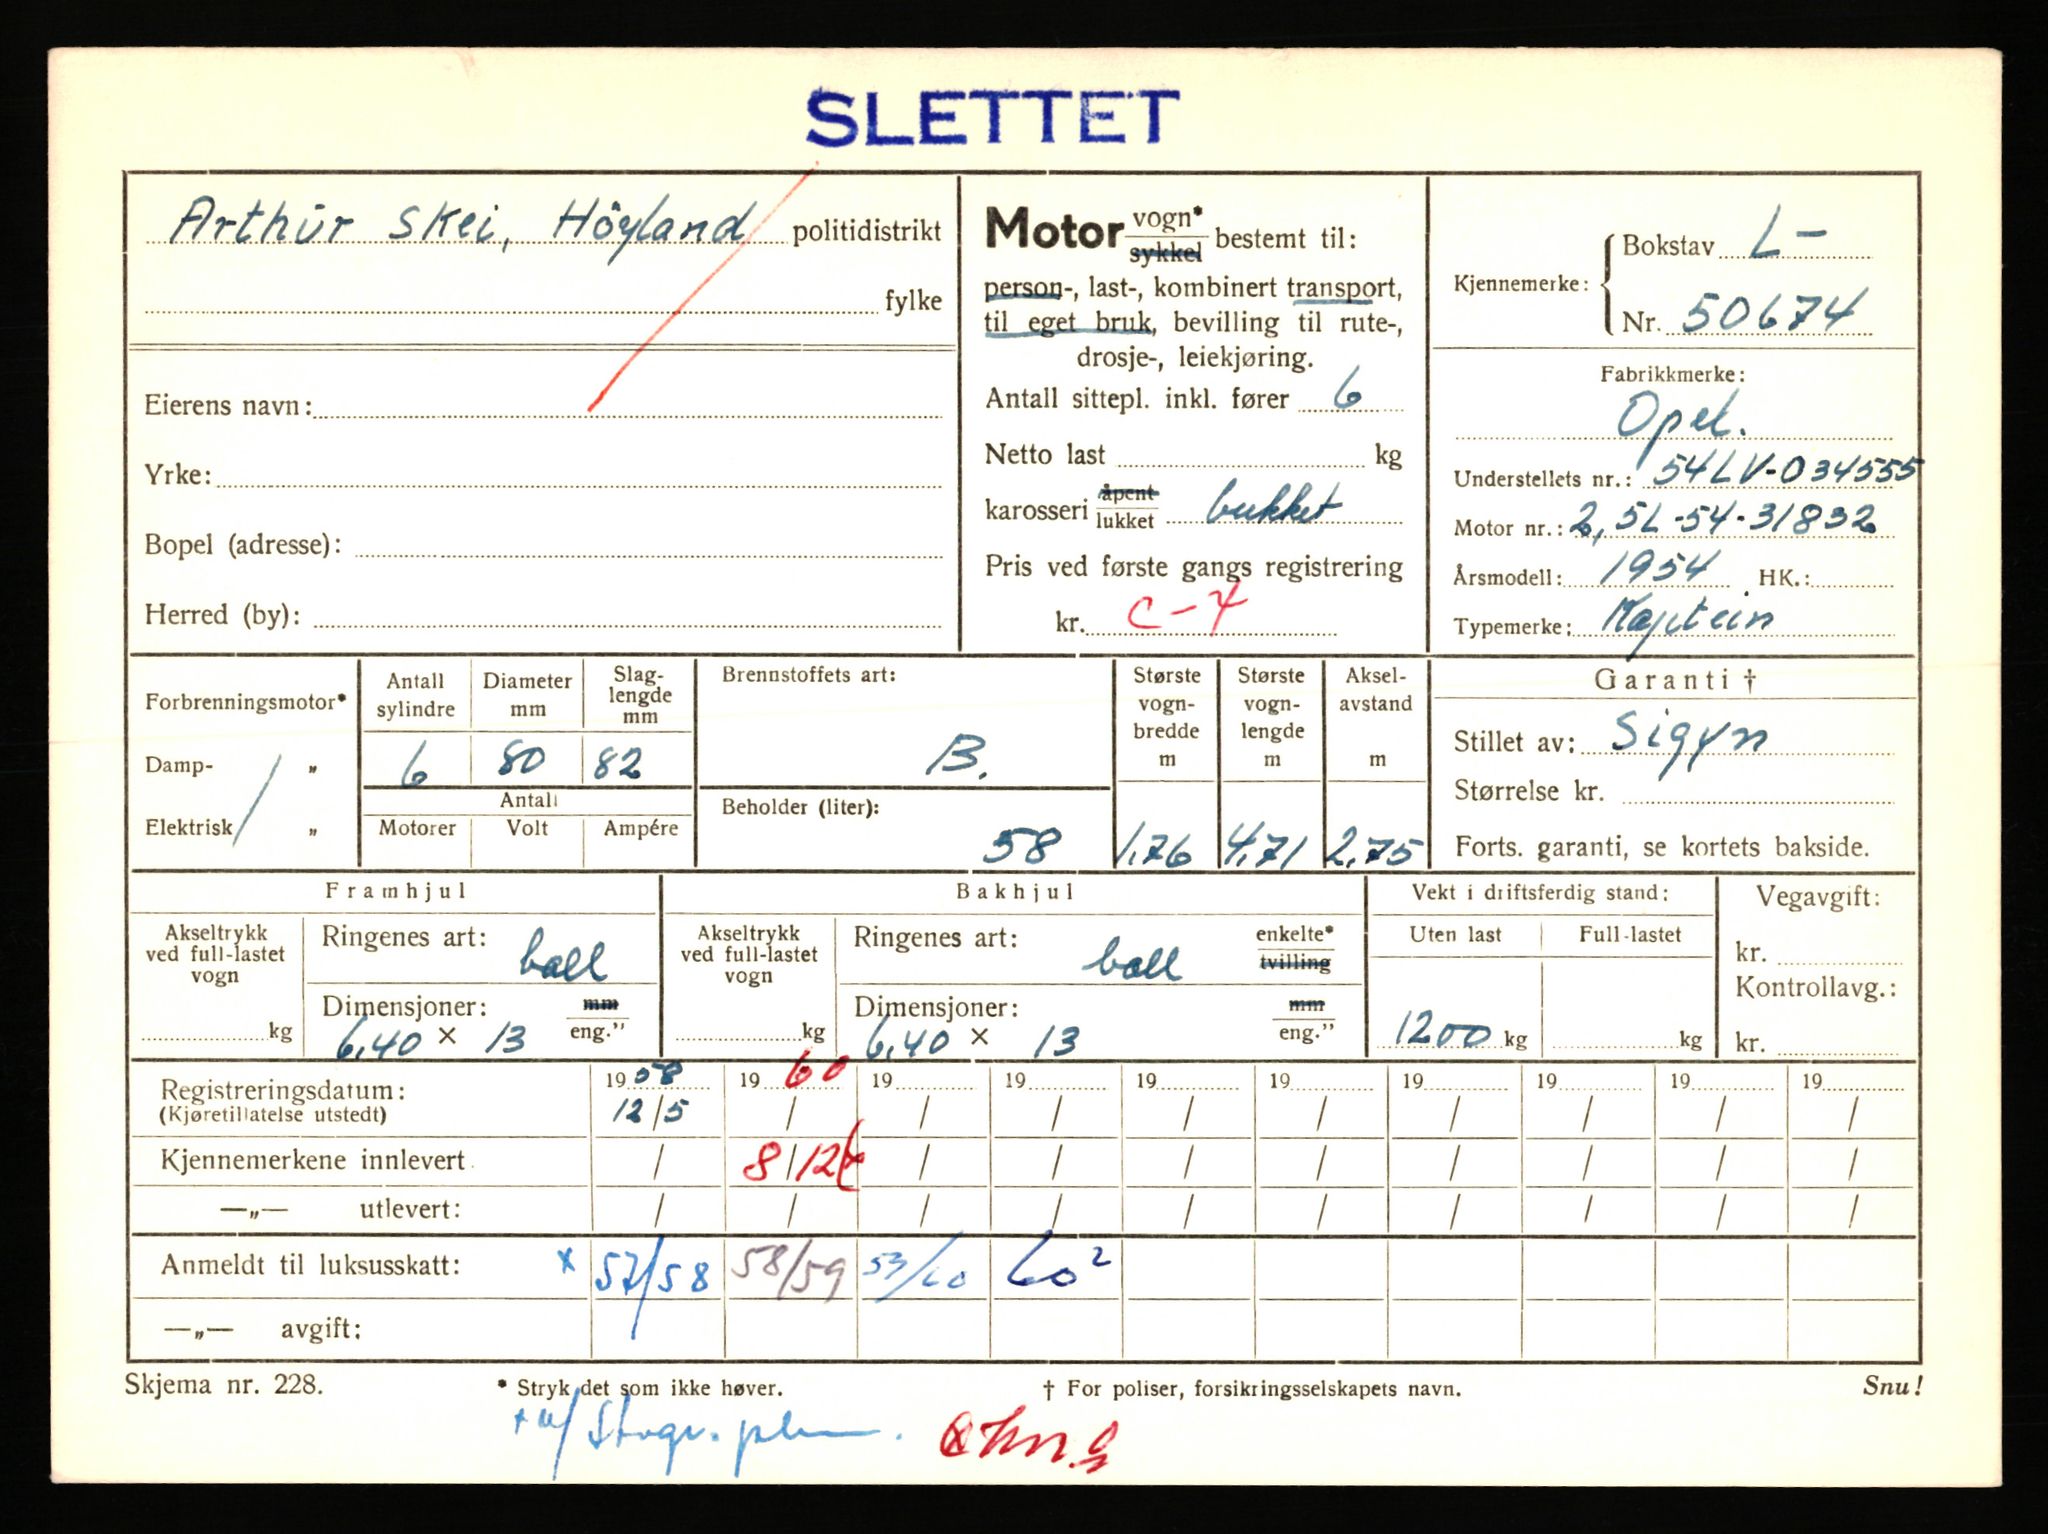 SLETTET
Arthur Skei, Höyland politidistrikt
fylke
Eierens navn:
Yrke:
Bopel (adresse):
Herred (by):
Motor vogn* sykkel bestemt til:
person-, last-, kombinert transport,
til eget bruk, bevilling til rute-,
drosje-, leiekjøring.
Antall sittepl. inkl. fører 6
Netto last kg
karosseri åpent lukket lukket
Pris ved første gangs registrering
kr. C-4
Kjennemerke: Bokstav L-
Nr. 50674
Fabrikkmerke:
Opel.
Understellets nr.: 54LV-034555
Motor nr.: 2,5L-54-31832
Årsmodell: 1954 HK.:
Typemerke: Kaptein
Forbrenningsmotor*
Damp- „
Elektrisk „
Antall sylindre Diameter mm Slag-lengde mm
6 80 82
Antall
Motorer Volt Ampére
Brennstoffets art:
B.
Beholder (liter):
58
Største vogn-bredde m Største vogn-lengde m Aksel-avstand m
1,76 4,71 2,75
Garanti †
Stillet av: Sigyn
Størrelse kr.
Forts. garanti, se kortets bakside.
Framhjul
Akseltrykk ved full-lastet vogn
kg
Ringenes art: ball
Dimensjoner: mm
6,40 × 13 eng."
Bakhjul
Akseltrykk ved full-lastet vogn
kg
Ringenes art: ball enkelte* tvilling
Dimensjoner: mm
6,40 × 13 eng."
Vekt i driftsferdig stand:
Uten last Full-lastet
1200 kg kg
Vegavgift:
kr.
Kontrollavg.:
kr.
Registreringsdatum: 1958 1960 19 19 19 19 19 19 19 19
(Kjøretillatelse utstedt) 12/5 / / / / / / / / /
Kjennemerkene innlevert / 8/12 / / / / / / / /
—„— utlevert: / / / / / / / / / /
Anmeldt til luksusskatt: x 57/58 58/59 59/60 60²
—„— avgift:
Skjema nr. 228. * Stryk det som ikke høver. † For poliser, forsikringsselskapets navn. Snu!